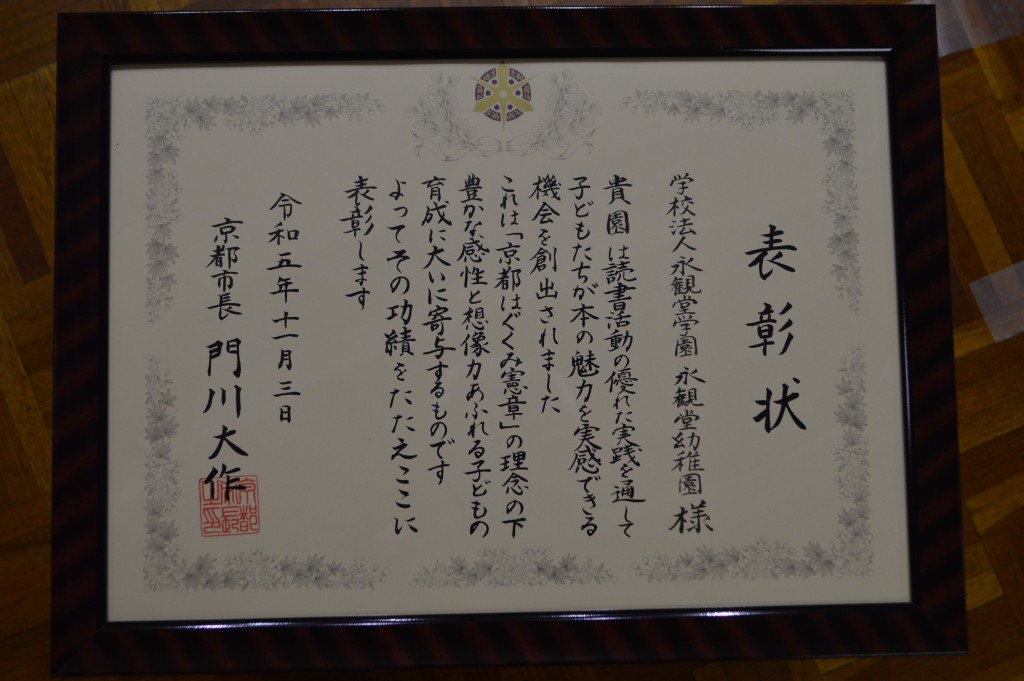 表彰状
学校法人永観堂学園 永観堂幼稚園 様
貴園は読書活動の優れた実践を通して
子どもたちが本の魅力を実感できる
機会を創出されました
これは「京都はぐくみ憲章」の理念の下
豊かな感性と想像力あふれる子どもの
育成に大いに寄与するものです
よってその功績をたたえここに
表彰します
令和五年十一月三日
京都市長 門川大作